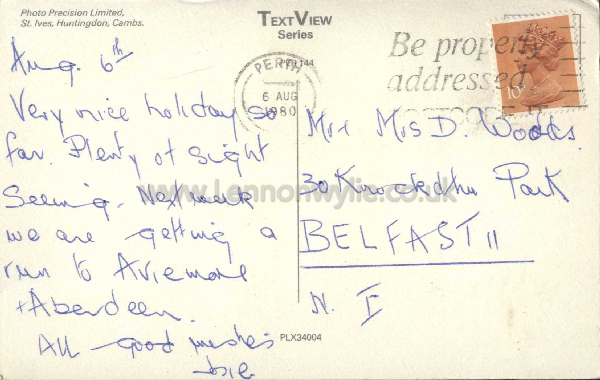 Photo Precision Limited,
St. Ives, Huntingdon, Cambs.
TEXTVIEW
Series
PLX34004
Aug. 6th
Very nice holiday so
far. Plenty of sight
Seeing. Next week
we are getting a
run to Aviemore
+ Aberdeen.
All good wishes
PERTH
6 AUG
1980
Be properly
addressed
10P
Mr + Mrs D. Woods.
30 Knockdhu Park
BELFAST 11
N. I
www.Lennonwylie.co.uk